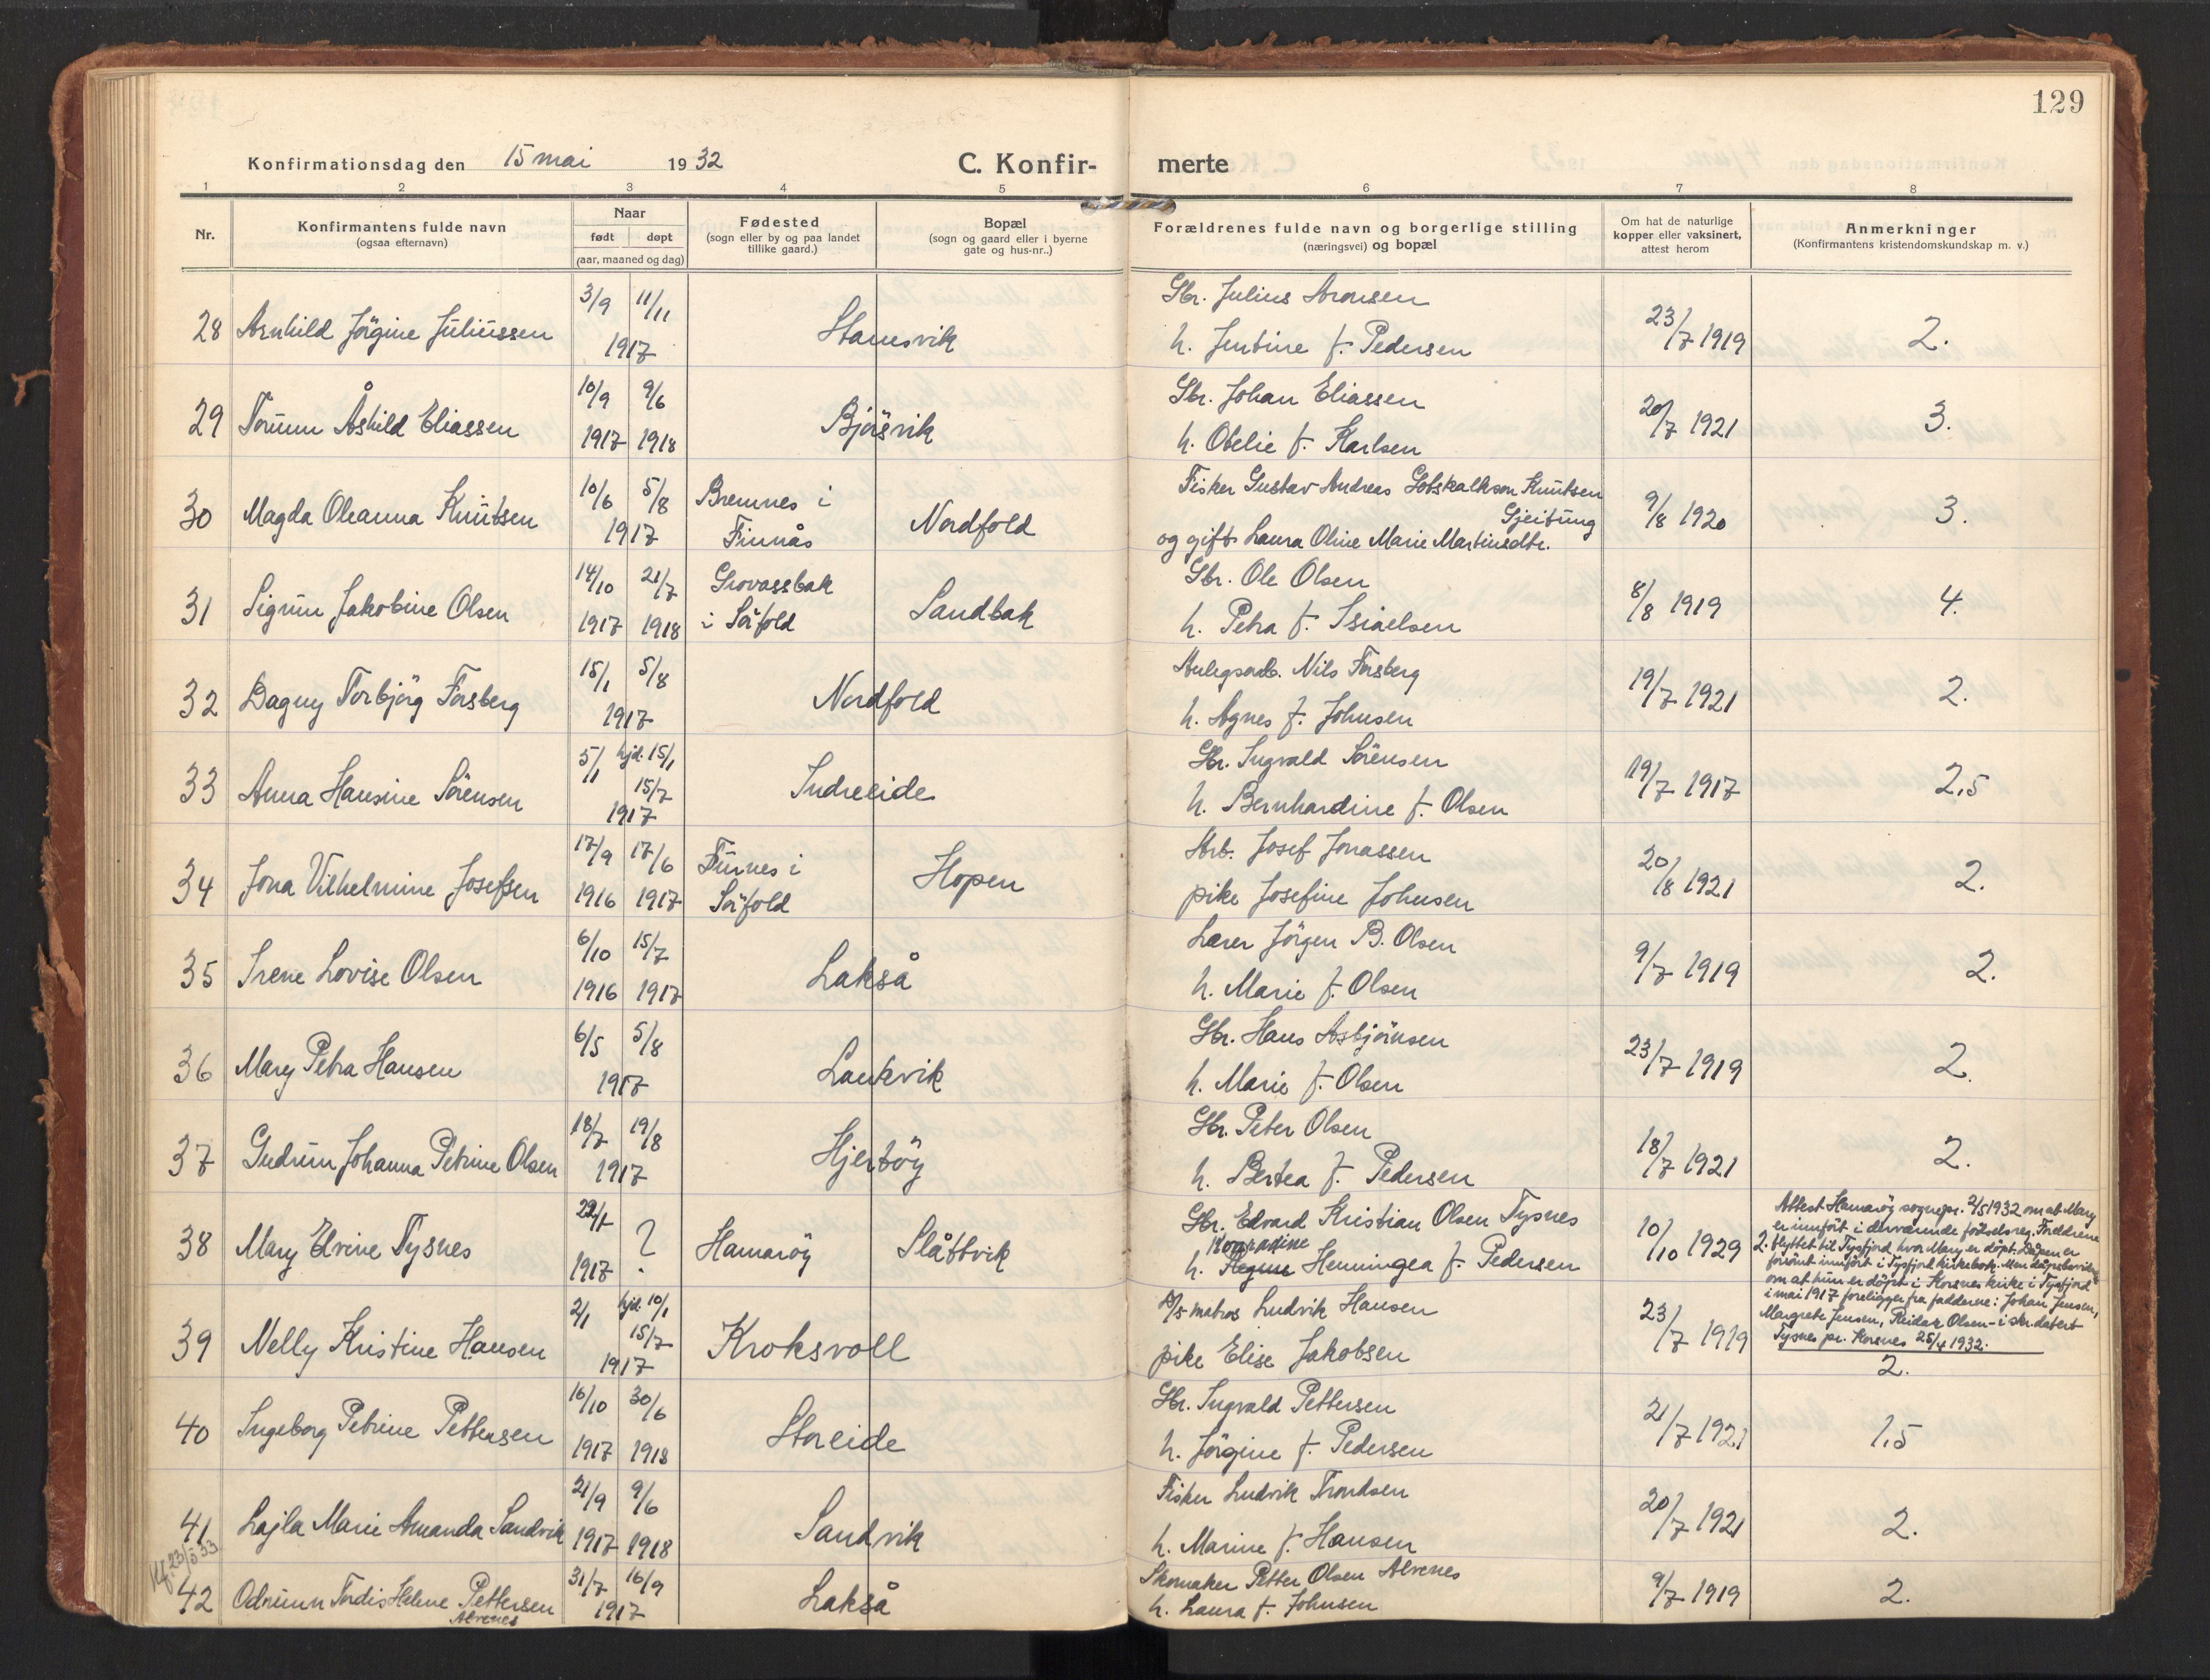 129
Konfirmationsdag den 15 mai 1932
C. Konfir-
merte
1 2 3 4 5 6 7 8
Nr.
Konfirmantens fulde navn
(ogsaa efternavn)
Naar
født døpt
(aar, maaned og dag)
Fødested
(sogn eller by og paa landet
tillike gaard.)
Bopæl
(sogn og gaard eller i byerne
gate og hus-nr..)
Forældrenes fulde navn og borgerlige stilling
(næringsvei) og bopæl
Om hat de naturlige
kopper eller vaksinert,
attest herom
Anmerkninger
(Konfirmantens kristendomskundskap m. v.)
3/9 11/11 Gbr. Julius Aronsen
28 Arnhild Jörgine Juliussen Stavnsvik 23/7 1919 2.
1917 h. Jentine f. Pedersen
10/9 9/6 Gbr. Johan Eliassen
29 Torunn Åshild Eliassen Bjørsvik 20/7 1921 3.
1917 1918 h. Obelie f. Karlsen
10/6 5/8 Bremnes i Fisker Gustav Andreas Gotskalkson Knutsen
30 Magda Oleanna Knutsen Nordfold Gjeitung 9/8 1920 3.
1917 Finnås og gift Laura Oline Marie Martinsdtr.
14/10 21/7 Grovassbak Gbr. Ole Olsen
31 Sigrun Jakobine Olsen Sandbak 8/8 1919 4.
1917 1918 i Sörfold h. Petra f. Israelsen
15/1 5/8 Anlegsarb. Nils Forsberg
32 Dagny Torbjörg Forsberg Nordfold 19/7 1921 2.
1917 h. Agnes f. Johnsen
5/1 hjd. 15/1 Gbr. Ingvald Sörensen
33 Anna Hansine Sörensen 15/7 Indreeide 19/7 1917 2,5
1917 h. Bernhardine f. Olsen
17/9 17/6 Furnes i Arb. Josef Jonassen
34 Jona Vilhelmine Josefsen Hopen 20/8 1921 2.
1916 1917 Sörfold pike Josefine Johnsen
6/10 15/7 Lærer Jörgen B. Olsen
35 Irene Lovise Olsen Lakså 9/7 1919 2.
1916 1917 h. Marie f. Olsen
6/5 5/8 Gbr. Hans Asbjörnsen
36 Mary Petra Hansen Lankvik 23/7 1919 2.
1917 h. Marie f. Olsen
18/7 19/8 Gbr. Peter Olsen
37 Gudrun Johanna Petrine Olsen Hjertöy 18/7 1921 2.
1917 h. Bertea f. Pedersen
22/1 Gbr. Edvard Kristian Olsen Tysnes
38 Mary Elvine Tysnes ? Hamaröy Slåttvik Konradine 10/10 1929 2.
1917 h. Henningea f. Pedersen
Attest Hamaröy sognepr. 2/5 1932 om at Mary
er innfört i derværende födselsreg. Foreldrene
flyttet til Tysfjord hvor Mary er döpt. Dåpen er
forsömt innfört i Tysfjord kirkebok. Men dåpsbevitn.
om at hun er döpt i Korsnes kirke i Tysfjord
i mai 1917 foreligger fra fadderne: Johan Jensen,
Margrete Jensen, Reidar Olsen - i skr. datert
Tysnes pr. Korsnes 25/4 1932.
2/1 hjd. 10/1 D/S matros Ludvik Hansen
39 Nelly Kristine Hansen 15/7 Kroksvoll 23/7 1919
1917 pike Elise Jakobsen 2.
16/10 30/6 Gbr. Ingvald Pettersen
40 Ingeborg Petrine Pettersen Storeide 21/7 1921 1,5
1917 1918 h. Jörgine f. Pedersen
21/9 9/6 Fisker Ludvik Trondsen
41 Lajla Marie Amanda Sandvik Sandvik 20/7 1921 2.
1917 1918 h. Marine f. Hansen
31/7 16/9 Skomaker Petter Olsen Alvenes
42 Odrunn Tordis Helene Pettersen Lakså 9/7 1919 2.
Alvenes 1917 h. Laura f. Johnsen